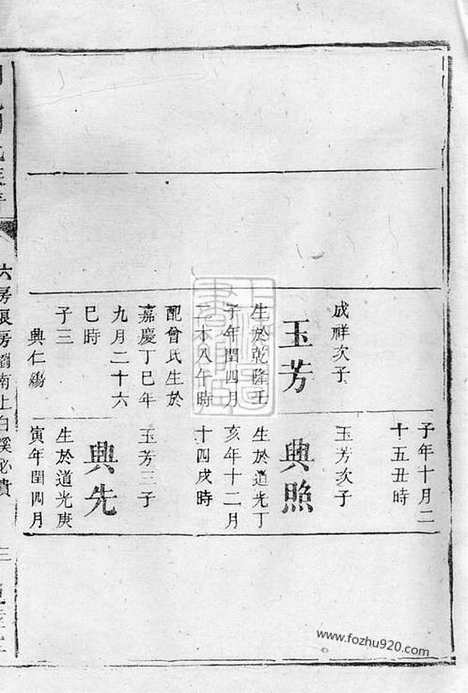 成祥次子
玉芳
生於乾隆壬
子年閏四月
配曾氏生於
嘉慶丁巳年
九月二十六
巳時
子三
興仁
子年十月二
十五丑時
玉芳次子
興照
生於道光丁
亥年十二月
十四戌時
玉芳三子
興先
生於道光庚
寅年閏四月
六房
www.fozhu920.com